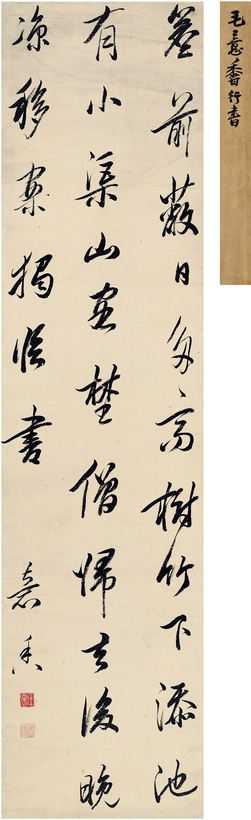 簷前蔽日多高樹竹下添池
有小渠山客埜僧歸去後晚
涼移案獨臨書
意香
毛意香行書